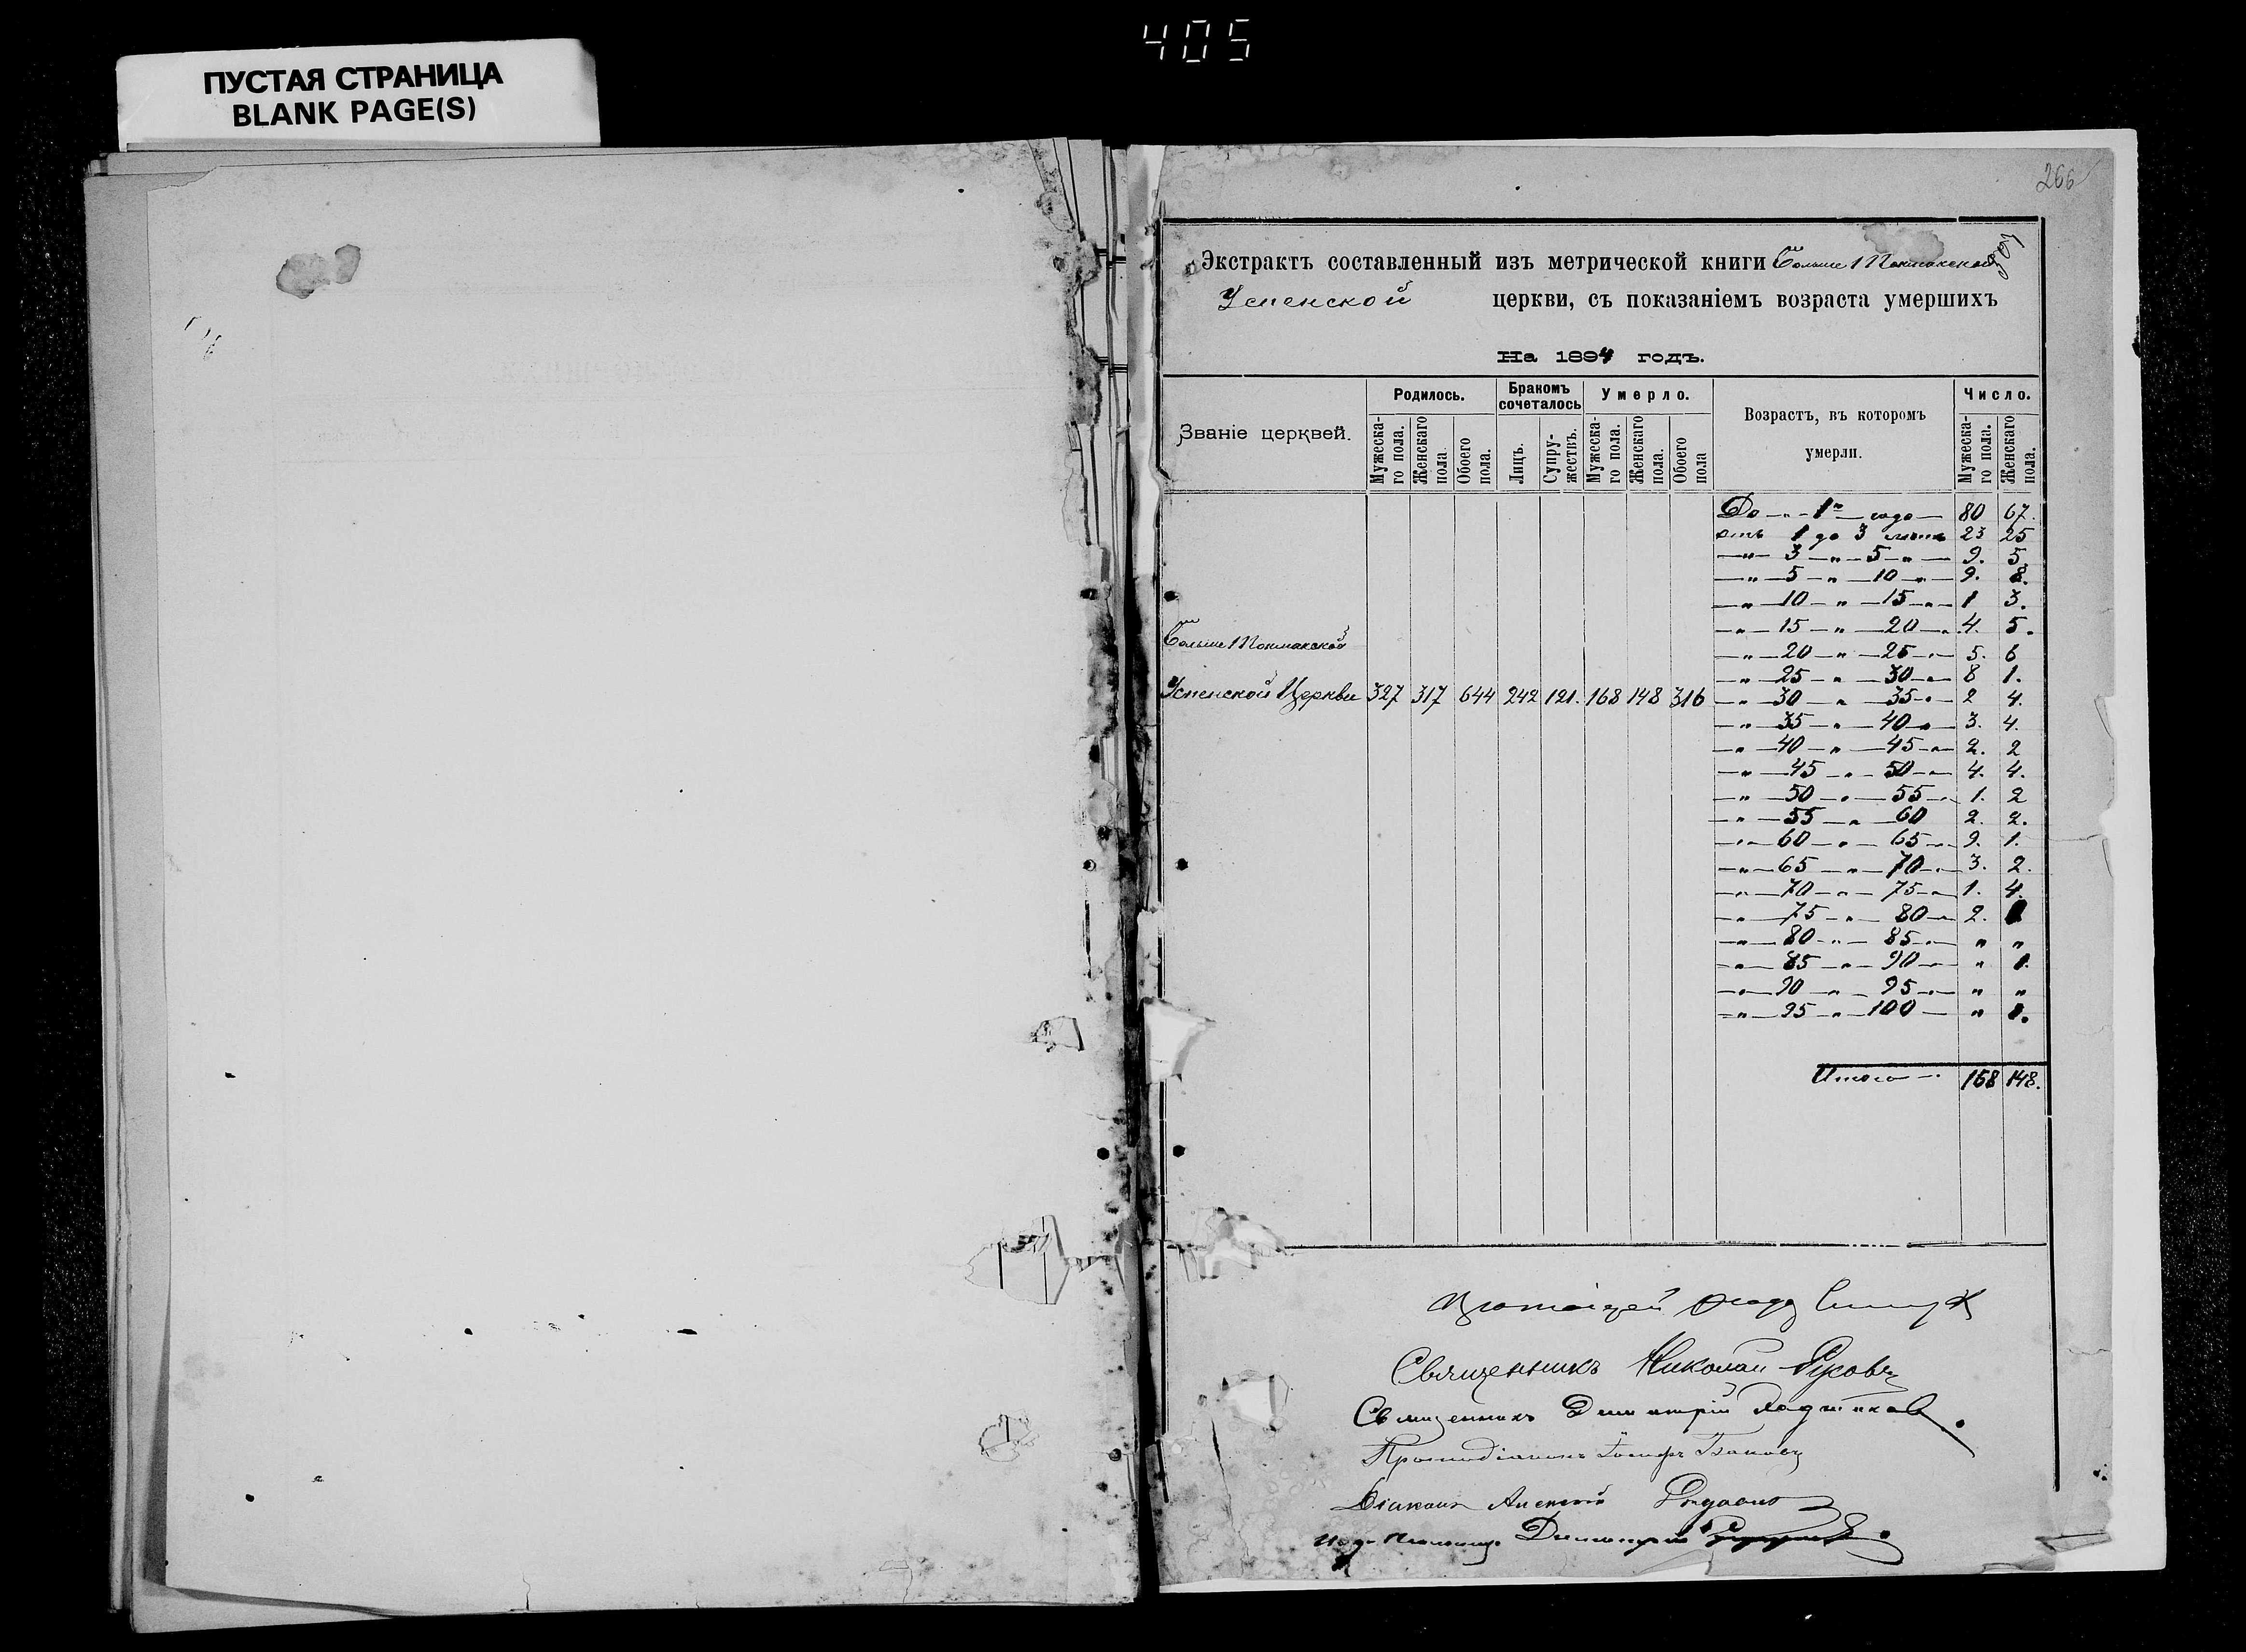 405
ПУСТАЯ СТРАНИЦА
BLANK PAGE(S)
266
Экстрактъ составленный изъ метрической книги Больше Токмакской
Успенской церкви, съ показаніемъ возраста умершихъ
На 1894 годъ.
Званіе церквей. Родилось. Бракомъ сочеталось Умерло. Возрастъ, въ которомъ умерли. Число.
Мужеска-го пола. Женскаго пола. Обоего пола. Лицъ. Супру-жествъ. Мужеска-го пола. Женскаго пола. Обоего пола Мужеска-го пола. Женскаго пола.
До — " — 1го — года — 80 67.
отъ 1 до 3 лѣтъ 23 25
— " — 3 — " — 5 — " — 9. 5.
— " — 5 — " — 10 — " — 9. 8.
— " — 10 — " — 15 — " — 1 3.
— " — 15 — " — 20 — " 4. 5.
Больше Токмакской
— " — 20 — " — 25 — " — 5. 6
— " — 25 — " — 30 — " — 8 1.
Успенской Церкви 327 317 644 242 121. 168 148 316 — " — 30 — " — 35 — " — 2 4.
— " — 35 — " — 40 — " — 3. 4.
— " — 40 — " — 45 — " — 2. 2
— " — 45 — " — 50 — " — 4. 4.
— " — 50 — " — 55 — " — 1. 2
— " — 55 — " — 60 2. 2.
— " — 60 — " — 65 — " — 9. 1.
— " — 65 — " — 70 — " — 3. 2.
— " — 70 — " — 75 — " — 1. 4.
— " — 75 — " — 80 — " 2.
— " — 80 — " — 85 — " — " "
— " — 85 — " — 90 — " — " 1.
— " — 90 — " — 95 — " — " "
— " — 95 — " — 100 — " 1.
Итого — 168 148.
Священникъ Николай
Священникъ Димитрій
Протодіаконъ Іосифъ
Діаконъ Алексей
Димитрій